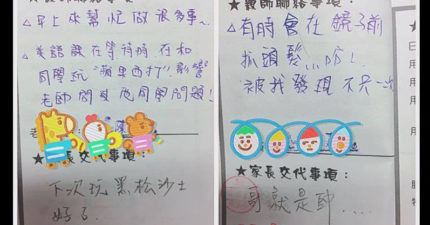 ★教師聯絡事項：
△早上來幫忙做很多事~
△美語課在等待時 在和
同學玩"蘋果西打"影響
老師問其他同學問題!
老
陳
長交代事項：
下次玩黑松沙士
好了.
★教師聯絡事項：
△有時會在鏡子前
抓頭髮
被我發現不只一次
★家長交代事項：
哥就是帥....
★
日
用
用
月